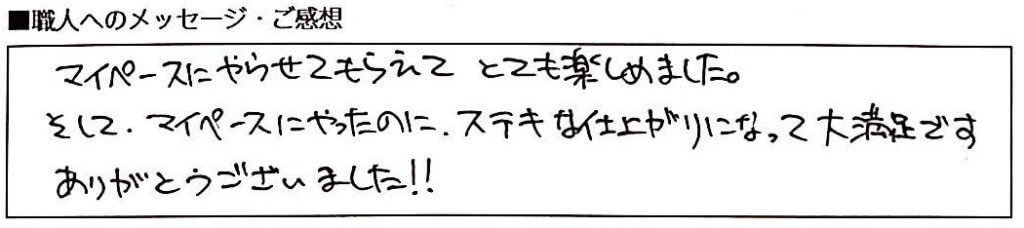 ■職人へのメッセージ・ご感想
マイペースにやらせてもらえて とても楽しめました。
そして、マイペースにやったのに、ステキな仕上がりになって大満足です
ありがとうございました!!